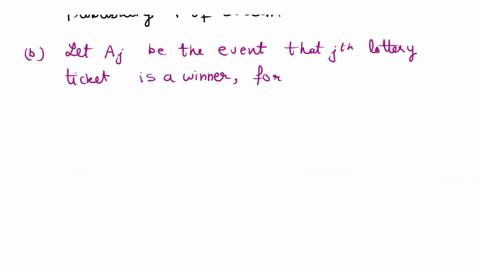 (b) Let Aj be the event that jth lottery
ticket is a winner, for